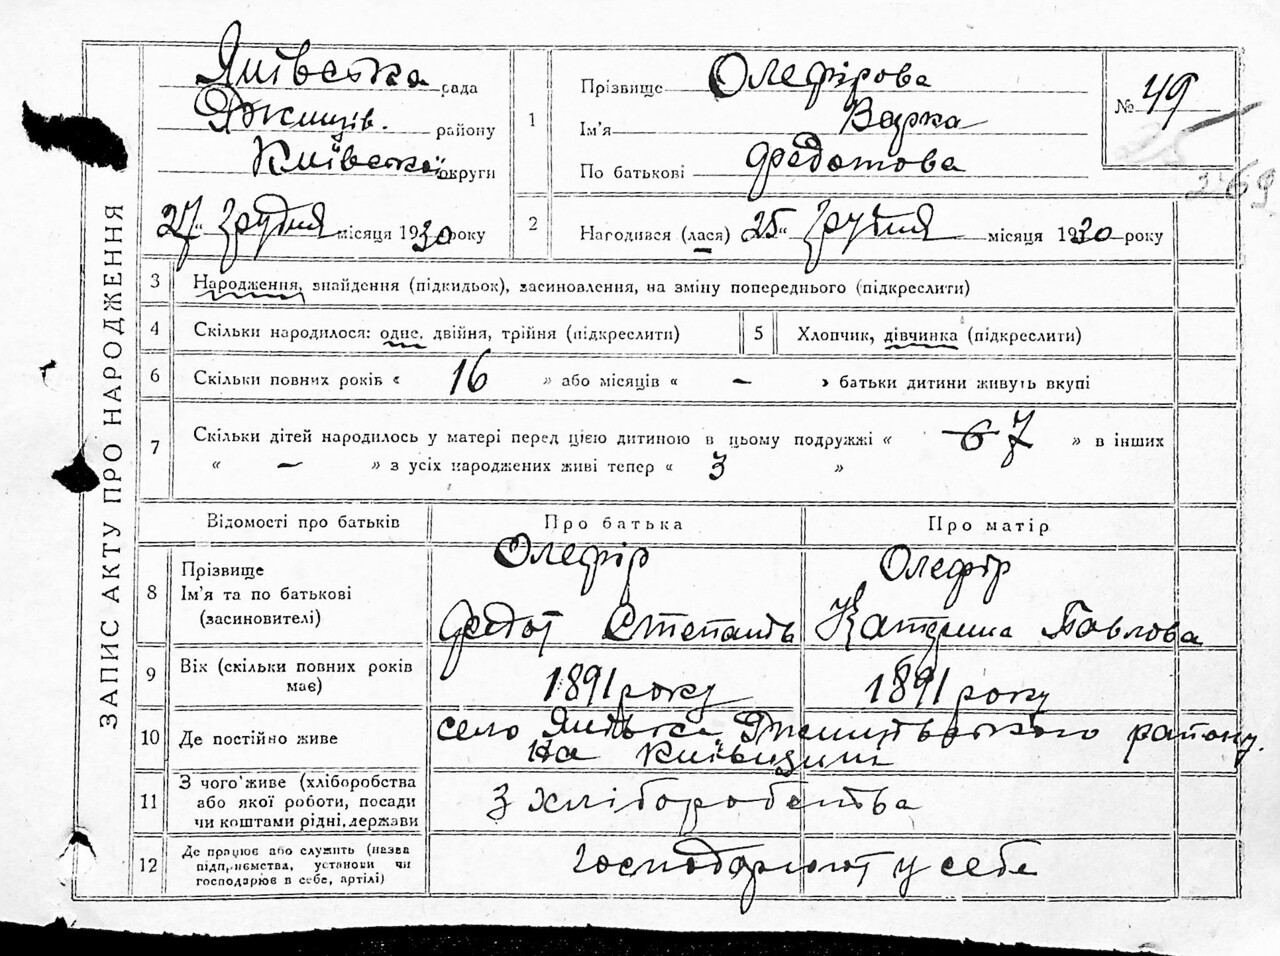 ЗАПИС АКТУ ПРО НАРОДЖЕННЯ
рада
району
Київської округи
27 грудня місяця 1930 року
1 Прізвище Олефірова
Ім'я
По батькові Федотова
№ 49
2 Народився (лася) 25 грудня місяця 1930 року
3 Народження, знайдення (підкидьок), засиновлення, на зміну попереднього (підкреслити)
4 Скільки народилося: одне, двійня, трійня (підкреслити)
5 Хлопчик, дівчинка (підкреслити)
6 Скільки повних років « 16 » або місяців « – » батьки дитини живуть вкупі
7 Скільки дітей народилось у матері перед цією дитиною в цьому подружжі « 6 7 » в інших
« – » з усіх народжених живі тепер « 3 »
Відомості про батьків Про батька Про матір
8 Прізвище
Ім'я та по батькові
(засиновителі)
Олефір
Федот Степанів
Олефір
Катерина Павлова
9 Вік (скільки повних років
має)
1891 року 1891 року
10 Де постійно живе
село району
на Київщині
11 З чого живе (хліборобства
або якої роботи, посади
чи коштами рідні, держави
З хліборобства
12 Де працює або служить (назва
підприємства, установи чи
господарює в себе, артілі)
господарюют у себе